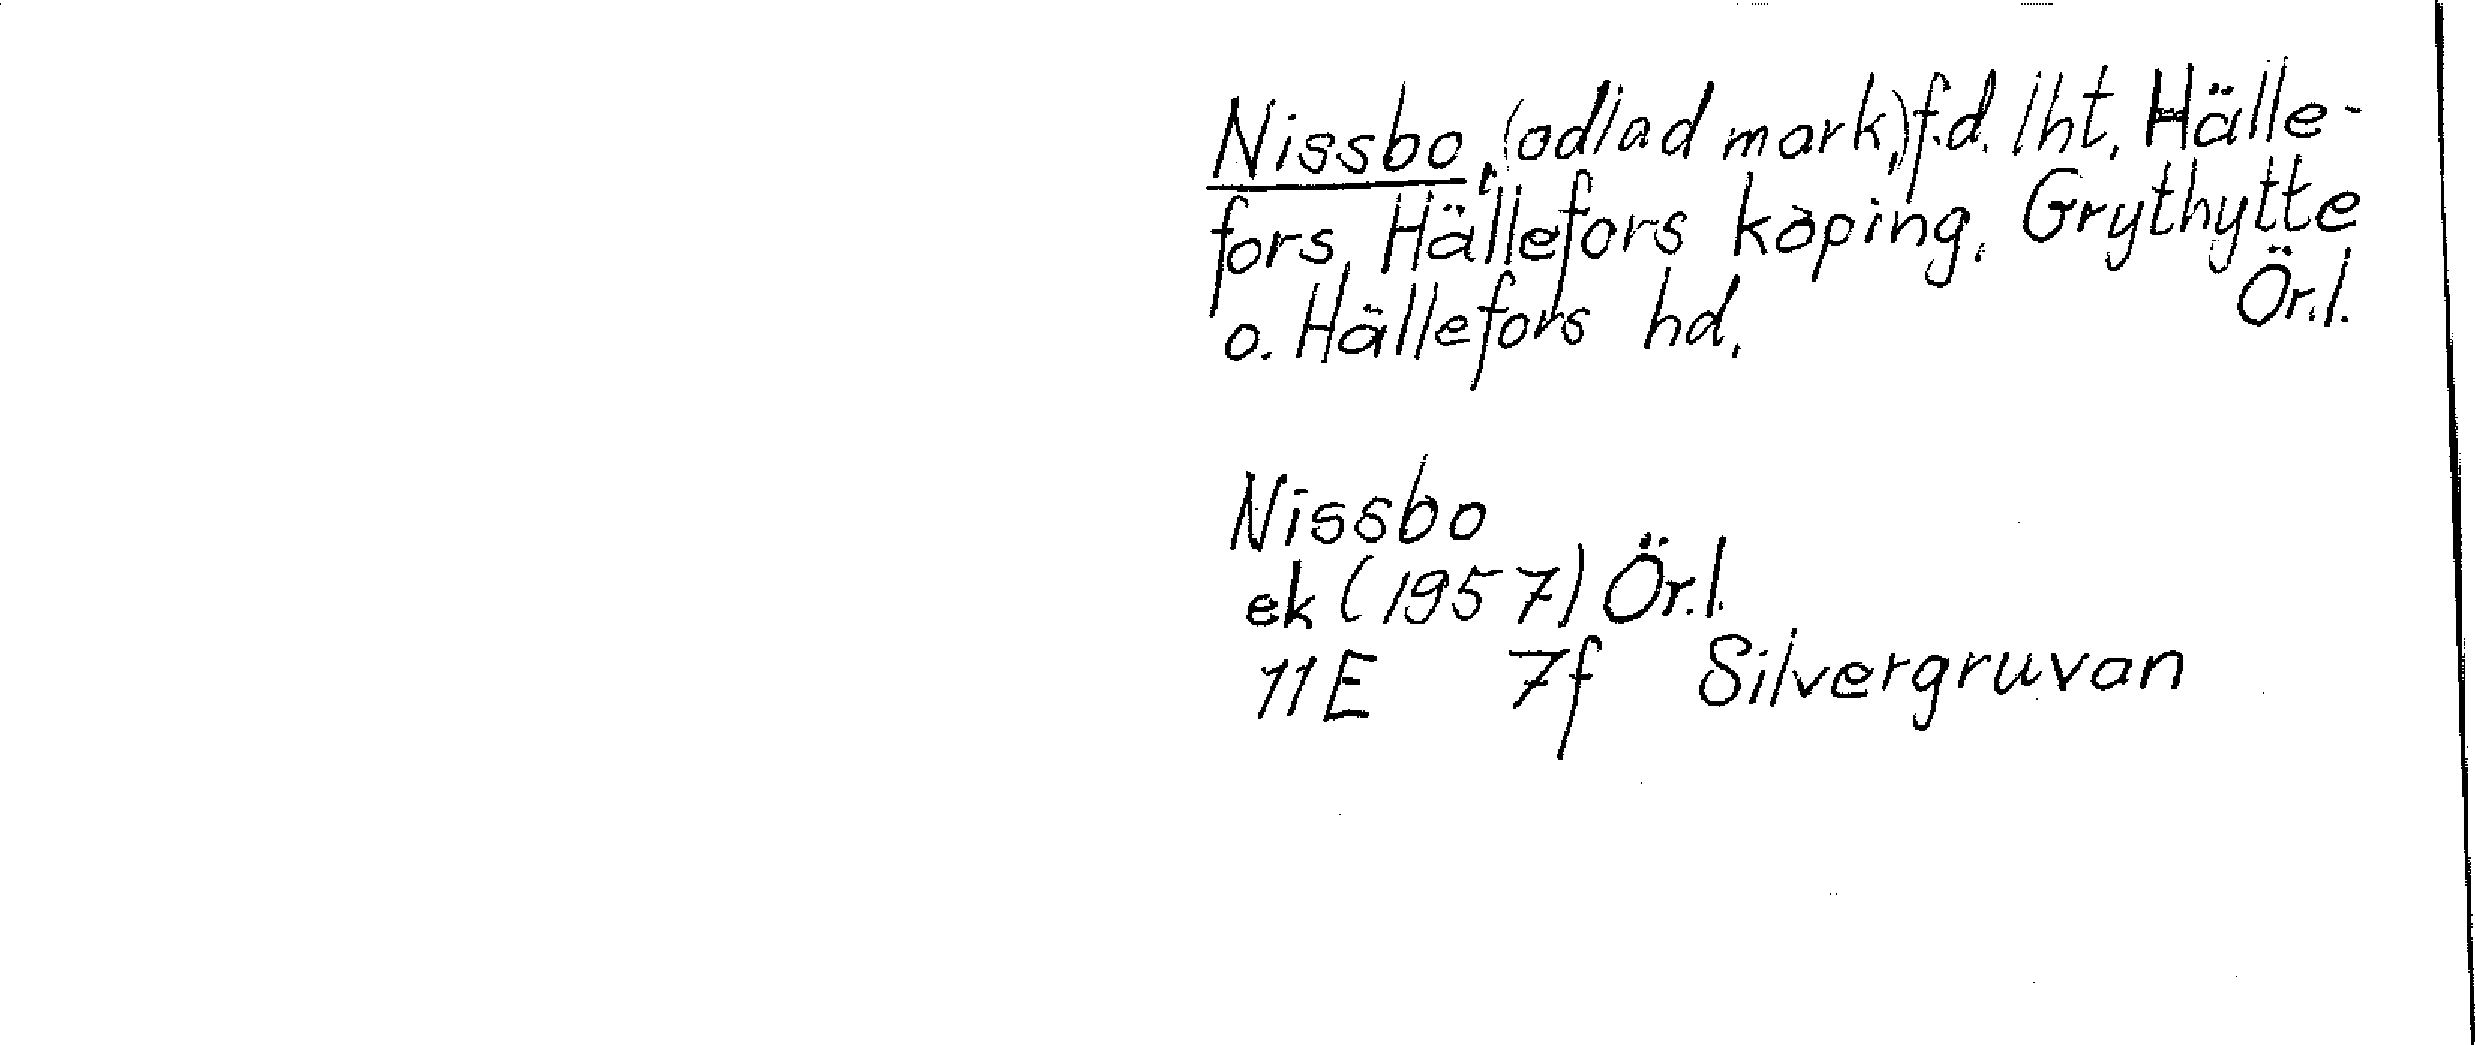 Nissbo, (odlad mark,) f.d. lht, Hälle-
fors, Hällefors köping, Grythytte
o. Hällefors hd, Ör.l.
Nissbo
ek (1957) Ör.l.
11E 7f Silvergruvan